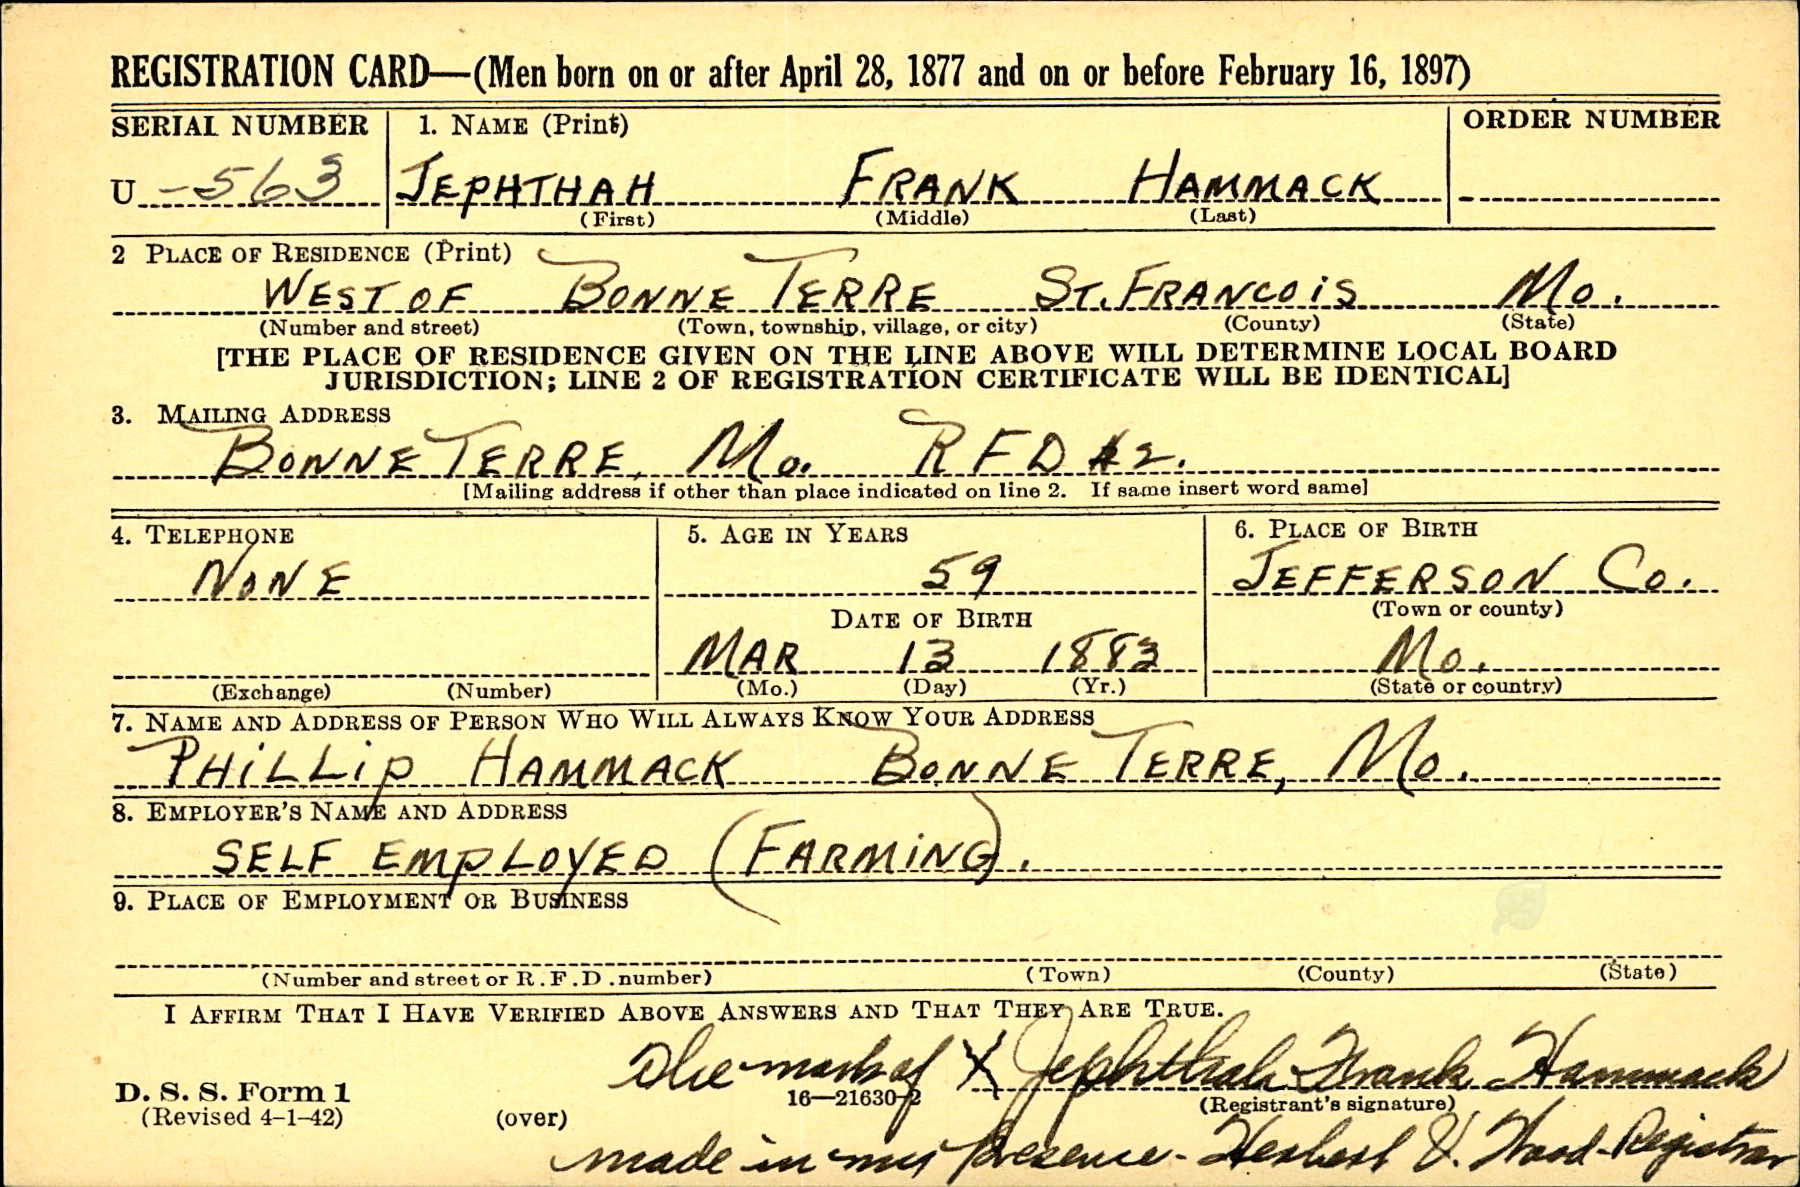 REGISTRATION CARD—(Men born on or after April 28, 1877 and on or before February 16, 1897)
SERIAL NUMBER 1. NAME (Print) ORDER NUMBER
U -563 JEPHTHAH FRANK HAMMACK
(First) (Middle) (Last)
2 PLACE OF RESIDENCE (Print)
WEST OF BONNE TERRE ST. FRANCOIS MO.
(Number and street) (Town, township, village, or city) (County) (State)
[THE PLACE OF RESIDENCE GIVEN ON THE LINE ABOVE WILL DETERMINE LOCAL BOARD
JURISDICTION; LINE 2 OF REGISTRATION CERTIFICATE WILL BE IDENTICAL]
3. MAILING ADDRESS
BONNE TERRE, Mo. RFD #2.
[Mailing address if other than place indicated on line 2. If same insert word same]
4. TELEPHONE 5. AGE IN YEARS 6. PLACE OF BIRTH
NONE 59 JEFFERSON Co.
DATE OF BIRTH (Town or county)
MAR 13 1883 Mo.
(Exchange) (Number) (Mo.) (Day) (Yr.) (State or country)
7. NAME AND ADDRESS OF PERSON WHO WILL ALWAYS KNOW YOUR ADDRESS
PHILLIP HAMMACK BONNE TERRE, Mo.
8. EMPLOYER'S NAME AND ADDRESS
SELF EMPLOYED (FARMING).
9. PLACE OF EMPLOYMENT OR BUSINESS
(Number and street or R.F.D. number) (Town) (County) (State)
I AFFIRM THAT I HAVE VERIFIED ABOVE ANSWERS AND THAT THEY ARE TRUE.
The mark of X Jephthah Frank Hammack
D. S. S. Form 1 16—21630-2 (Registrant's signature)
(Revised 4-1-42) (over)
made in my presence - Herbert V. Wood - Registrar